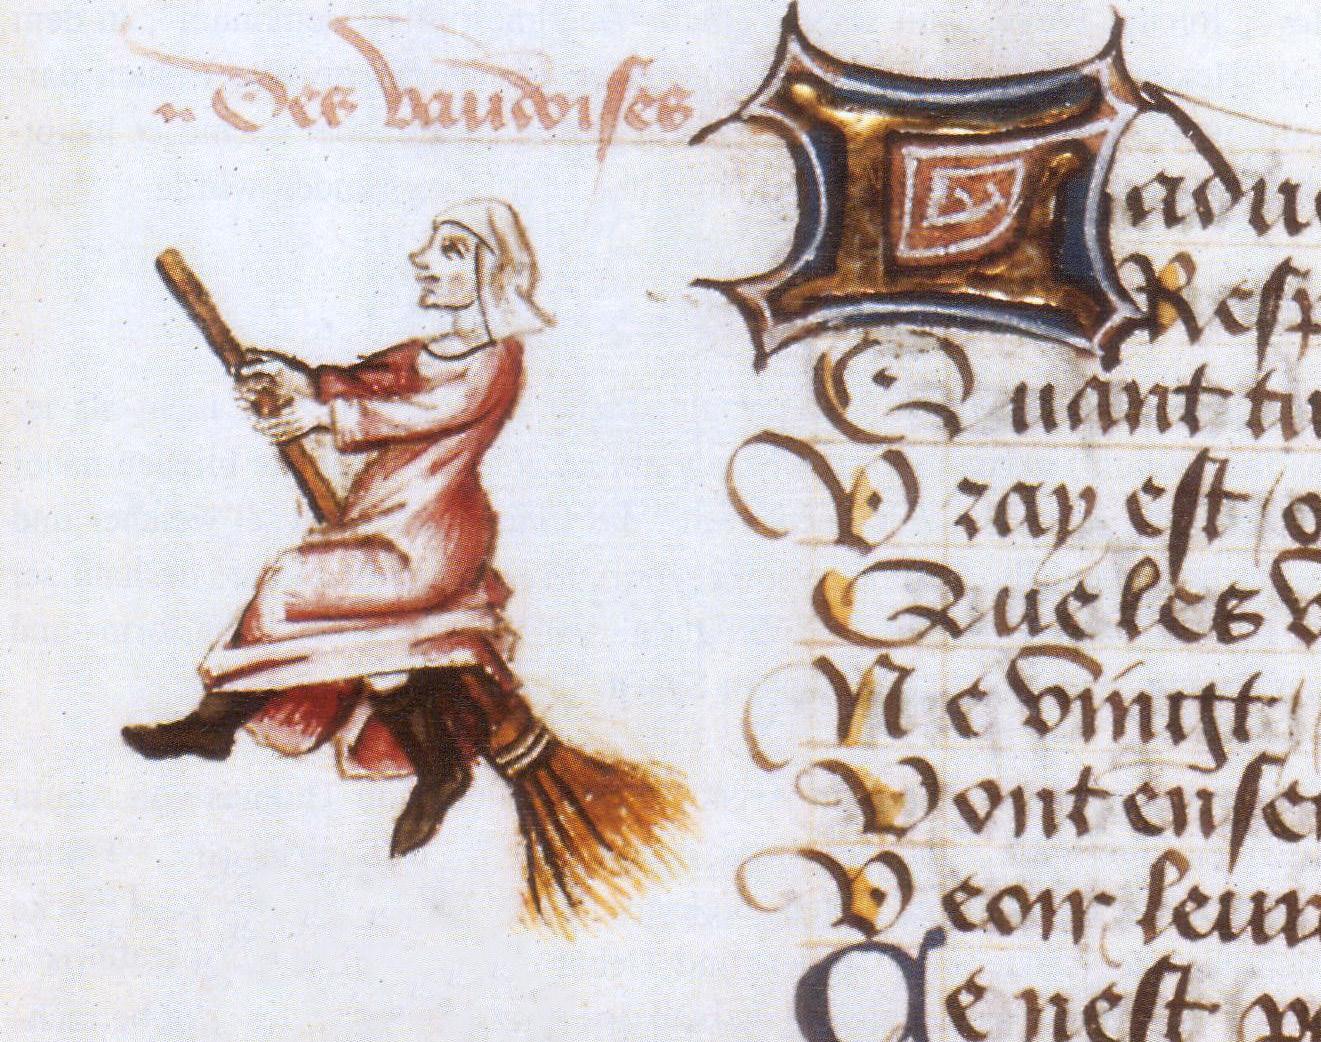 Des vaudoises
Ladue
Resp
Quant tu
Vray est / o
Que les v
Ne vingt
Vont ense
Veoir leur
Ce nest p